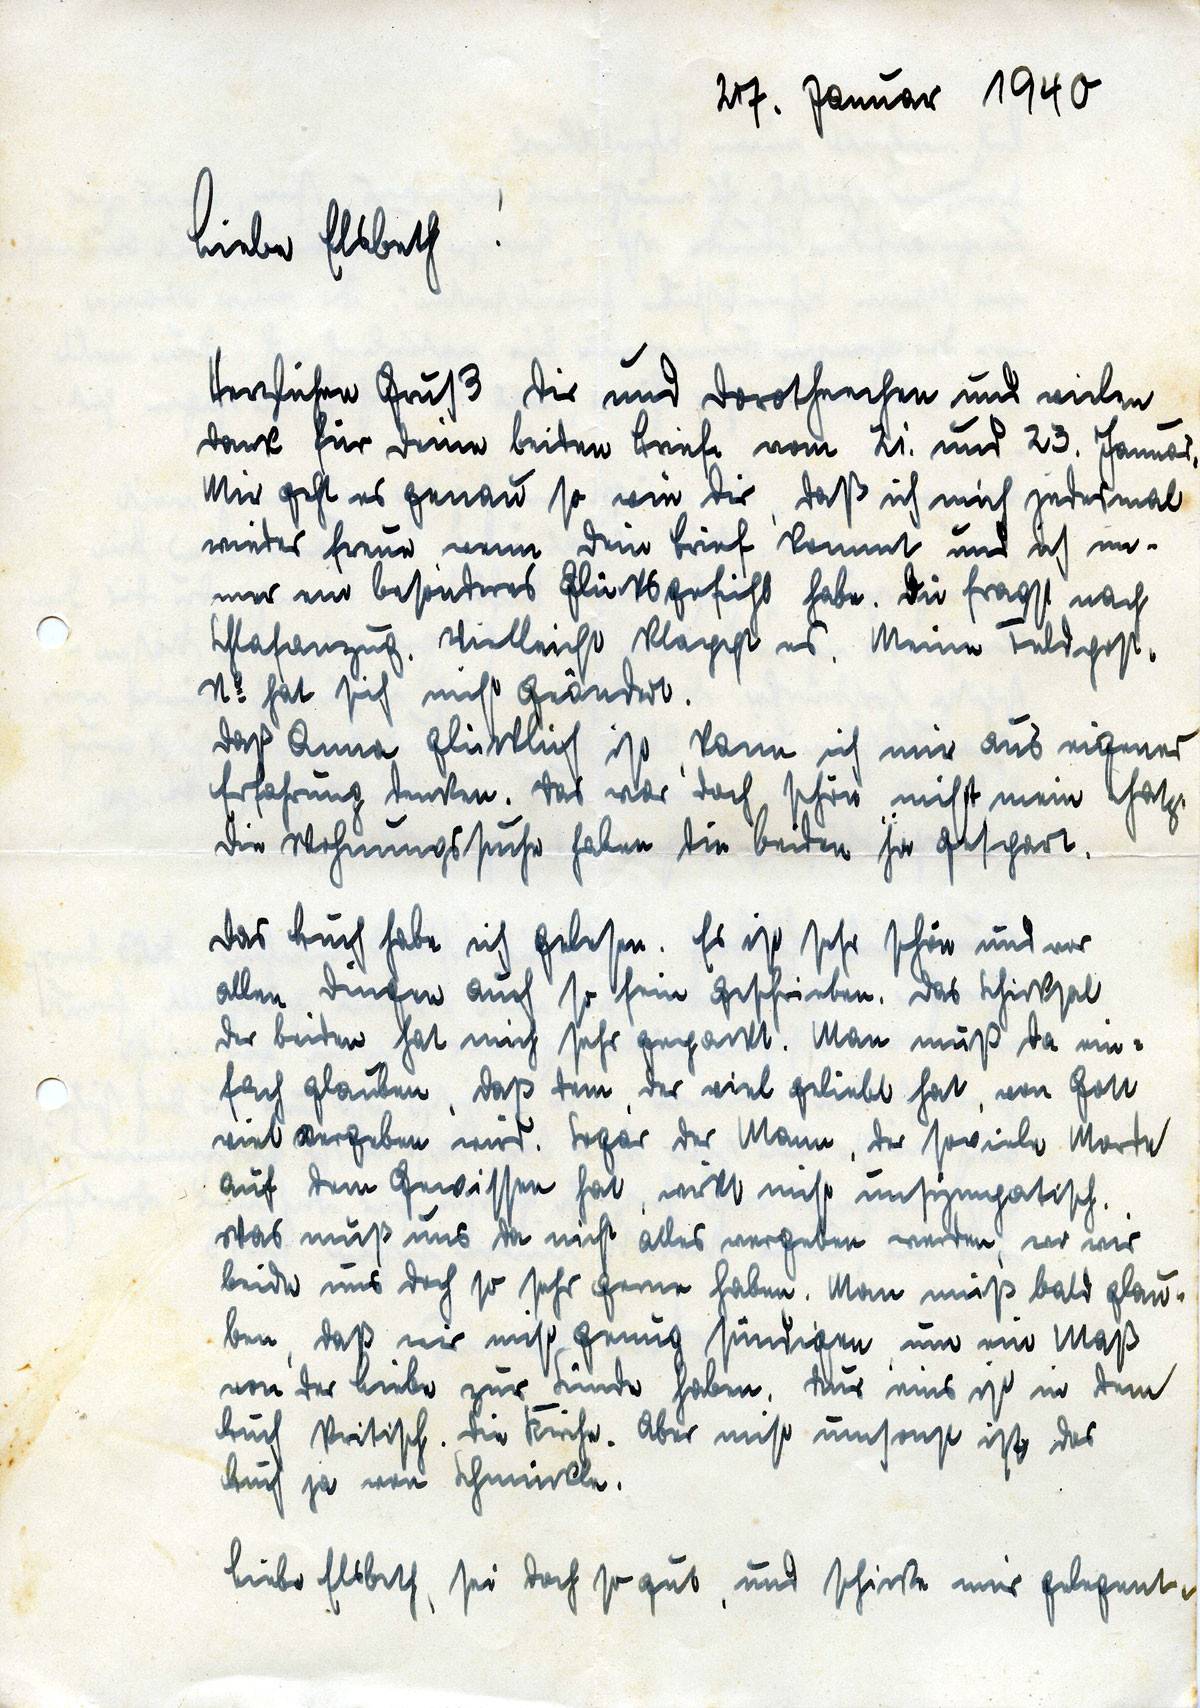 27. Januar 1940
Liebe Elsbeth!
Herzlichen Gruß Dir und Dorotheechen und vielen
Dank für Deine beiden Briefe vom 21. und 23. Januar.
Mir geht es genau so wie Dir, daß ich mich jedesmal
wieder freue wenn Dein Brief kommt und ich im-
mer ein besonderes Glücksgefühl habe. Du fragst nach
Schlafanzug. Vielleicht klappt es. Meine Feldpost.
No hat sich nicht geändert.
Daß Anna glücklich ist, kann ich mir aus eigener
Erfahrung denken. Das war doch schön, nicht mein Schatz.
Die Wohnungssuche haben die beiden ja gespart.
Das Buch habe ich gelesen. Es ist sehr schön und vor
allen Dingen auch so fein geschrieben. Das Schicksal
der beiden hat mich sehr gepackt. Man muß da ein-
fach glauben, daß dem, der viel geliebt hat, von Gott
viel vergeben wird. Sogar der Mann, der soviele Morde
auf dem Gewissen hat, wirkt nicht unsympatisch.
Was muß uns da nicht alles vergeben werden, wo wir
beide uns doch so sehr gerne haben. Man muß bald glau-
ben, daß wir nicht genug sündigen, um ein Maß
von der Liebe zur Sünde haben. Nur eins ist in dem
Buch kritisch. Die Kirche. Aber nicht umsonst ist das
Buch ja von Schmückle.
Liebe Elsbeth, sei doch so gut, und schicke mir gelegent-